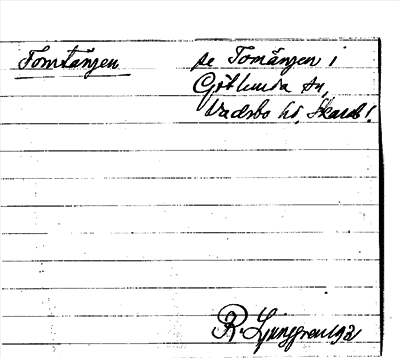 Tomtängen se Tomängen i
Götlunda sn,
Vadsbo hd, Skarab!.
R. Ljunggren 1921